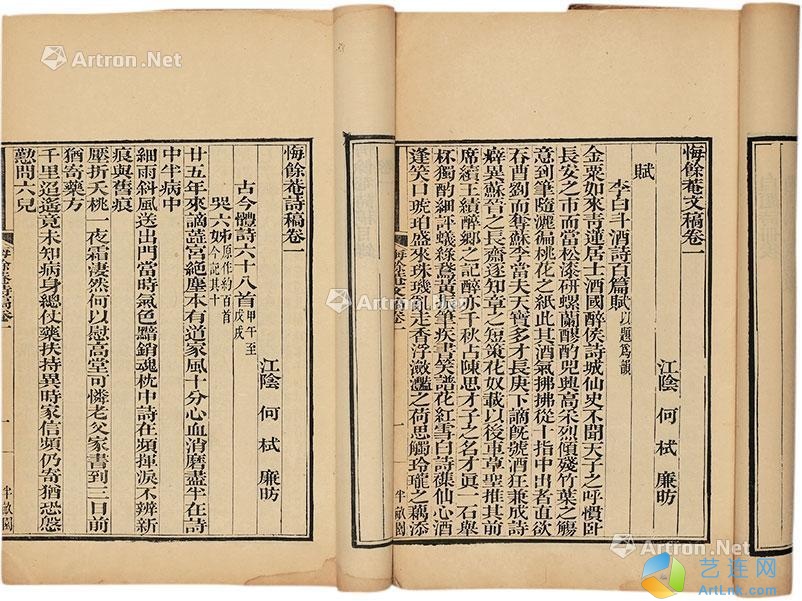 悔餘菴文稿卷一
江陰 何栻 廉昉
賦
李白斗酒詩百篇賦 以題爲韻
金粟如來青蓮居士酒國醉侯詩城仙史不聞天子之呼慣卧
長安之市而當松漆研螺蘭醪酌兕興高采烈傾殘竹葉之觴
意到筆隨灑徧桃花之紙此其酒氣拂拂從十指中出者直欲
吞酉劉而奪蘇李當夫天寶多才長庚下謫旣號酒狂兼成詩
癖異蘇晉之長齋逐知章之短策花奴載以後車草聖推其前
席續王績醉鄉之記醉亦千秋占陳思才子之名才眞一石舉
杯獨酌細評蟻綠鵞黃 筆疾書笑譜花紅雪白詩 仙心酒
逢笑口琥珀盛來珠璣亂走香浮瀲灩之荷思觸玲瓏之藕添
悔餘菴文稿卷一
一
半畝園
悔餘菴詩稿卷一
江陰 何栻 廉昉
古今體詩六十八首 甲午至戊戌
哭六姊 原作約百首今記其十
廿五年來謫蕋宮絕塵本有道家風十分心血消磨盡半在詩
中半病中
細雨斜風送出門當時氣色黯銷魂枕中詩在頻揮淚不辨新
痕與舊痕
壓折夭桃一夜霜淒然何以慰高堂可憐老父家書到三日前
猶寄藥方
千里迢遙竟未知病身總仗藥扶持異時家信頻仍寄猶恐慇
懃問六兒
悔餘菴詩稿卷一
一
半畝園
Artron.Net
Artron.Net
Artron.Net
Artron.Net
Artron.Net
艺连网
ArtLnk.com